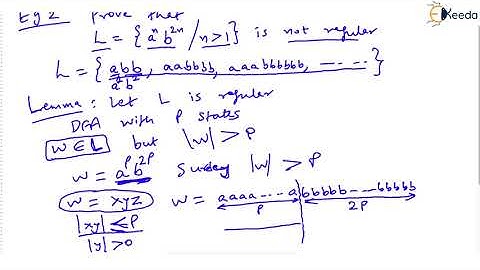 Eg 2 Prove that
L = { aⁿ b²ⁿ / n>1 } is not regular
L = { abb, aabbbb, aaabbbbbb, ---- }
a²b²
Lemma : Let L is regular
DFA with P states
W ∈ L but |w| > P
w = aᵖ b²ᵖ |w| > P
w = xyz w = aaaa---a bbbbb---bbbbb
P 2P
|xy| ≤ P
|y| > 0
Keeda